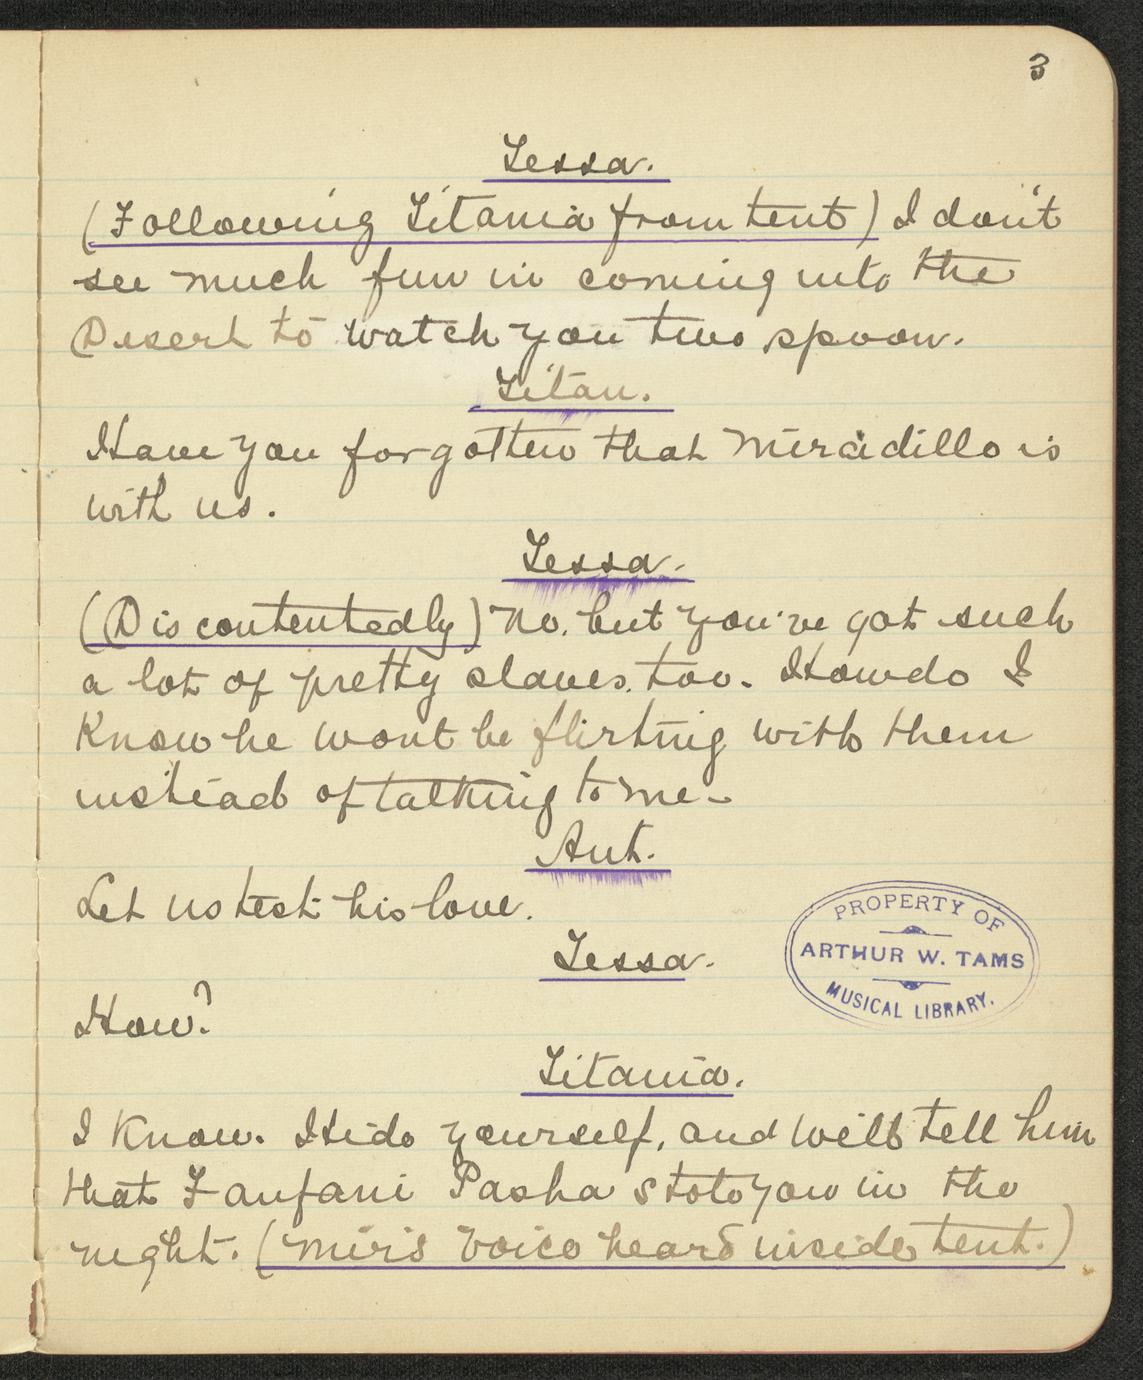 3
Tessa.
(Following Titania from tent) I don't
see much fun in coming into the
Desert to watch you two spoon.
Titan.
Have you forgotten that Miradillo is
with us.
Tessa.
(Discontentedly) No, but you've got such
a lot of pretty slaves, too. How do I
Know he wont be flirting with them
instead of talking to me-
Ant.
Let us test his love.
PROPERTY OF
ARTHUR W. TAMS
MUSICAL LIBRARY.
Tessa.
How?
Titania.
I know. Hide yourself, and we'll tell him
that Fanfani Pasha stole you in the
night. (Mir's voice heard inside tent.)